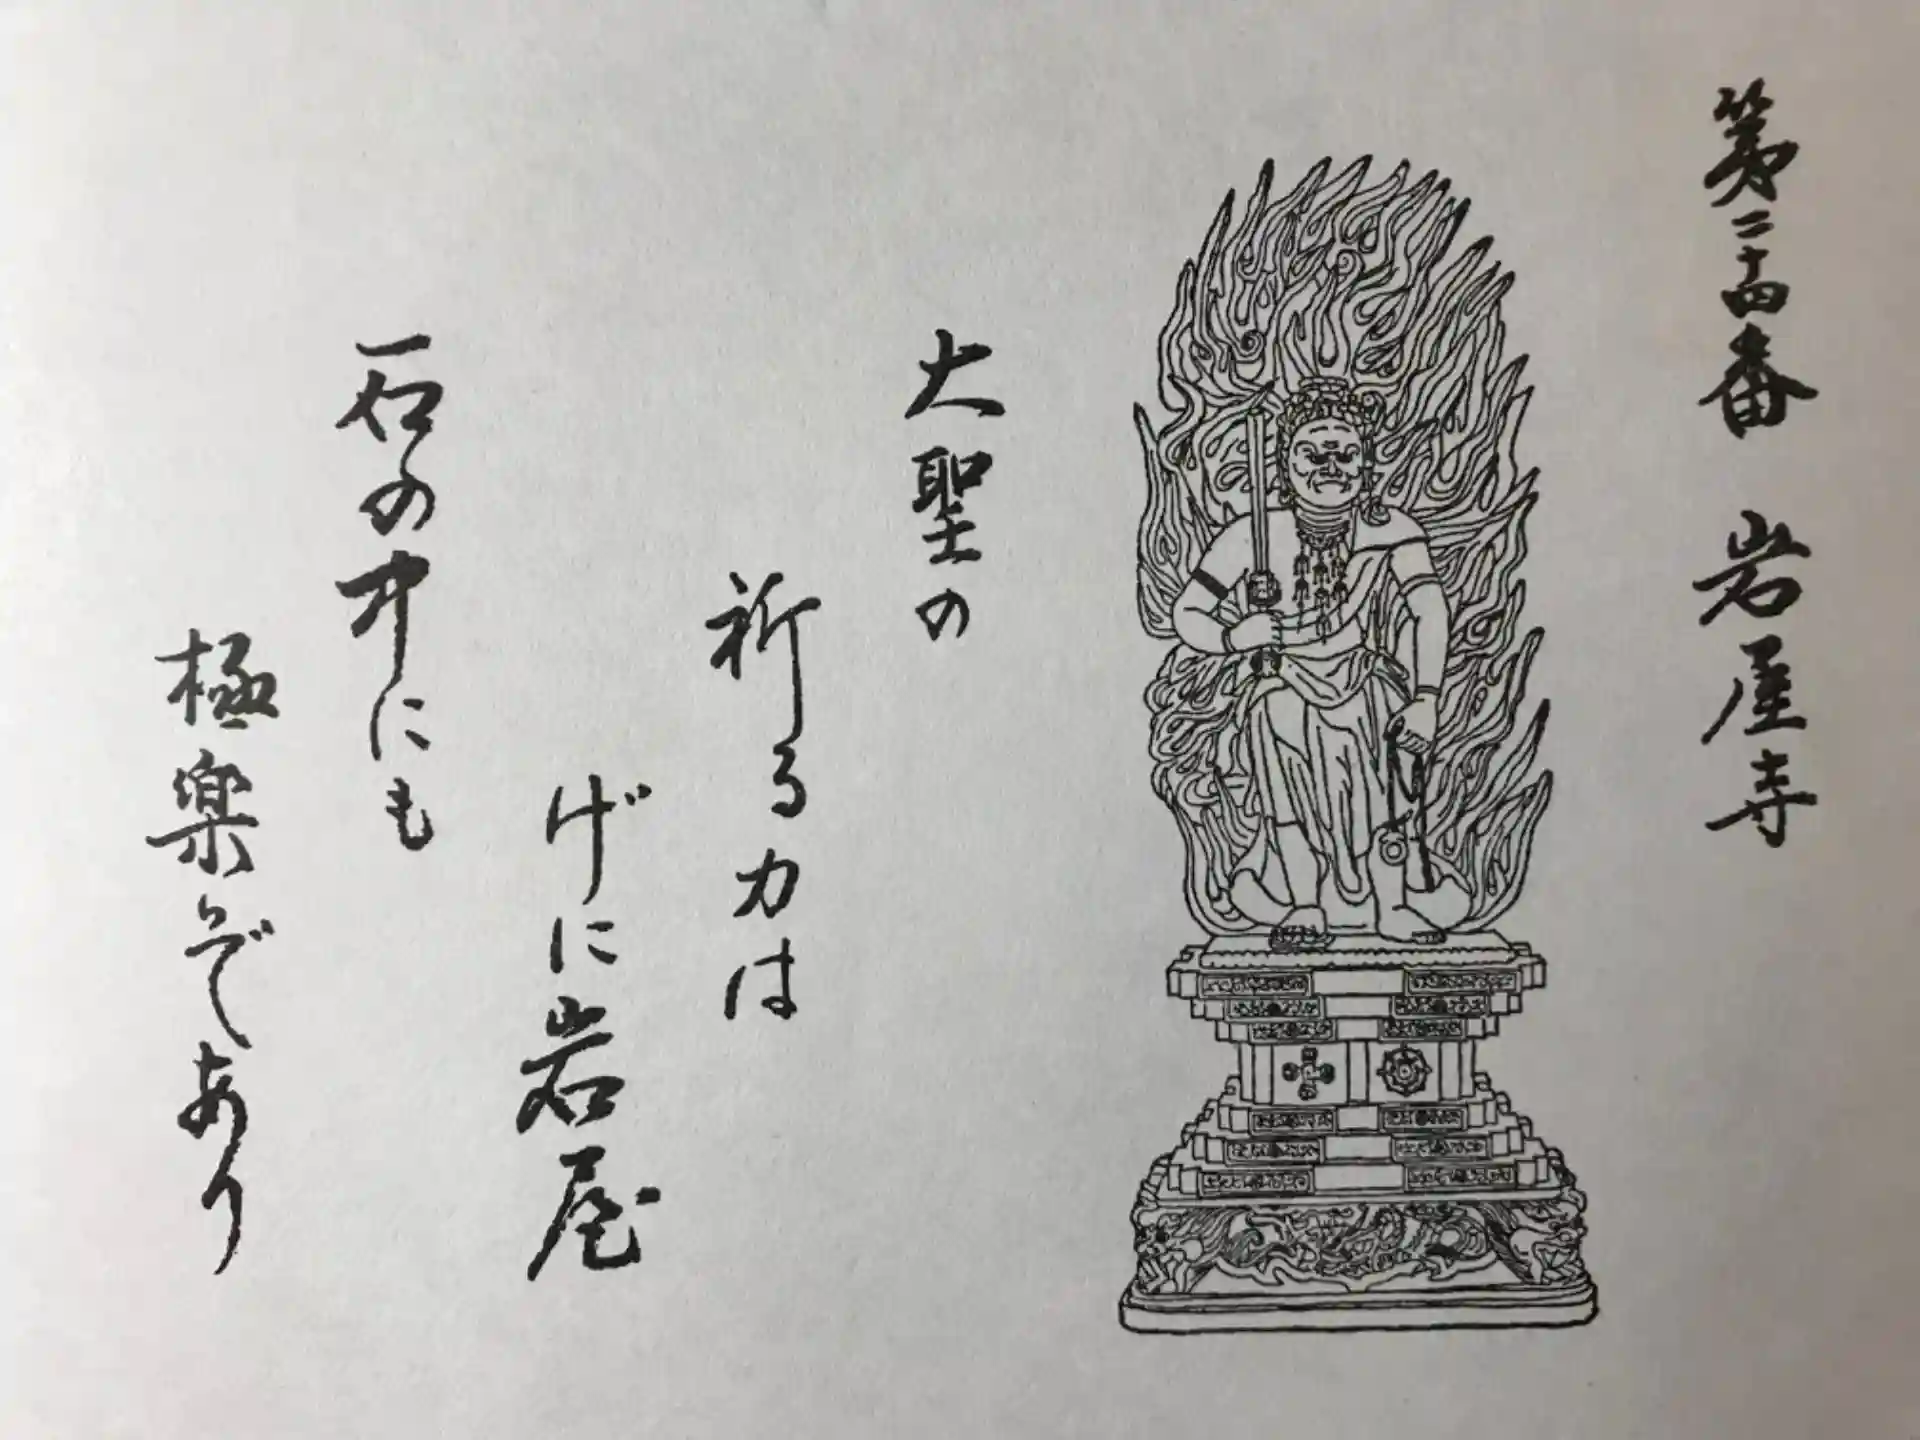 第二十四番 岩屋寺
大聖の
祈る力は
げに岩屋
石の中にも
極楽ぞあり